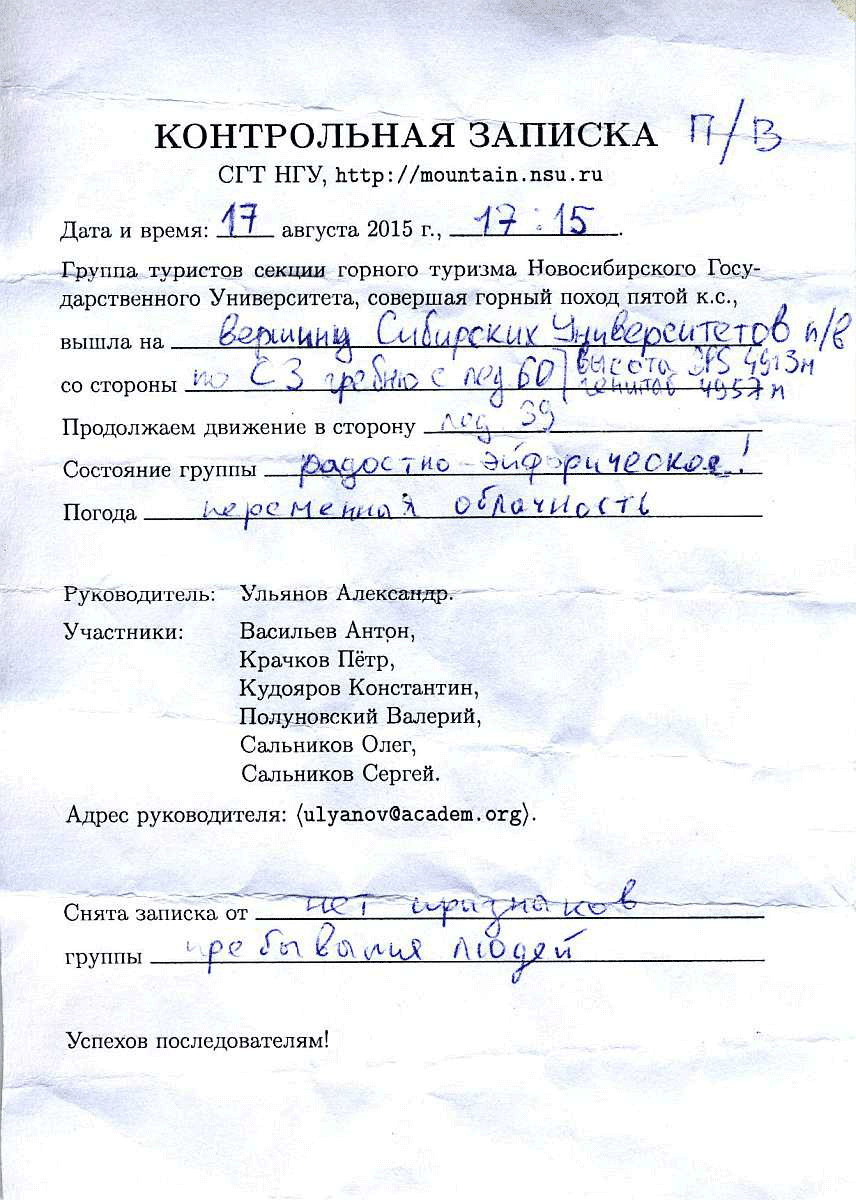 КОНТРОЛЬНАЯ ЗАПИСКА П/В
СГТ НГУ, http://mountain.nsu.ru
Дата и время: 17 августа 2015 г., 17:15.
Группа туристов секции горного туризма Новосибирского Госу-
дарственного Университета, совершая горный поход пятой к.с.,
вышла на вершину Сибирских Университетов п/в
со стороны по СЗ гребню с лед 60 высота GPS 4913м
генштаб 4957м
Продолжаем движение в сторону лед 39
Состояние группы радостно-эйфорическое!
Погода переменная облачность
Руководитель: Ульянов Александр.
Участники: Васильев Антон,
Крачков Пётр,
Кудояров Константин,
Полуновский Валерий,
Сальников Олег,
Сальников Сергей.
Адрес руководителя: ⟨ulyanov@academ.org⟩.
Снята записка от нет признаков
группы пребывания людей
Успехов последователям!